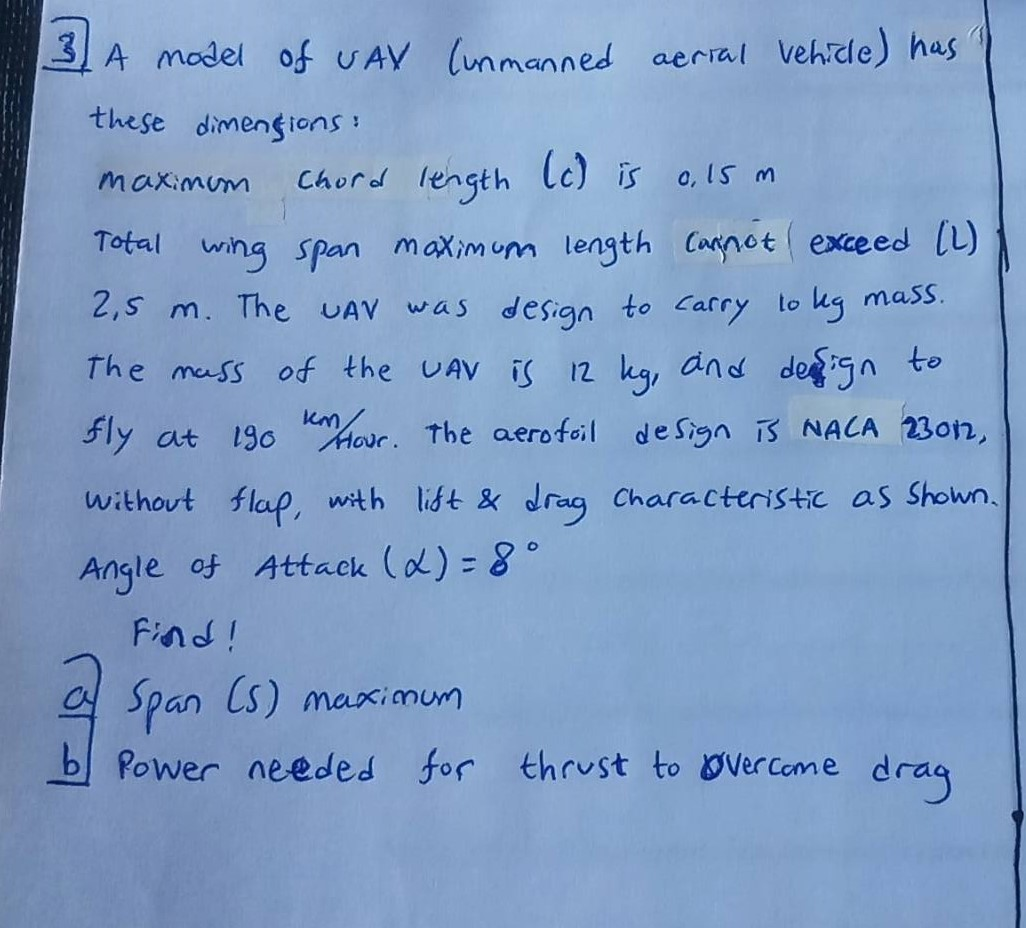 3 A model of UAV (unmanned aerial vehicle) has
these dimensions:
maximum chord length (c) is 0,15 m
Total wing span maximum length cannot exceed (L)
2,5 m. The UAV was design to carry 10 kg mass.
The mass of the UAV is 12 kg, and design to
fly at 190 km/Hour. The aerofoil design is NACA 23012,
without flap, with lift & drag characteristic as shown.
Angle of Attack (α) = 8°
Find!
a Span (S) maximum
b Power needed for thrust to overcome drag